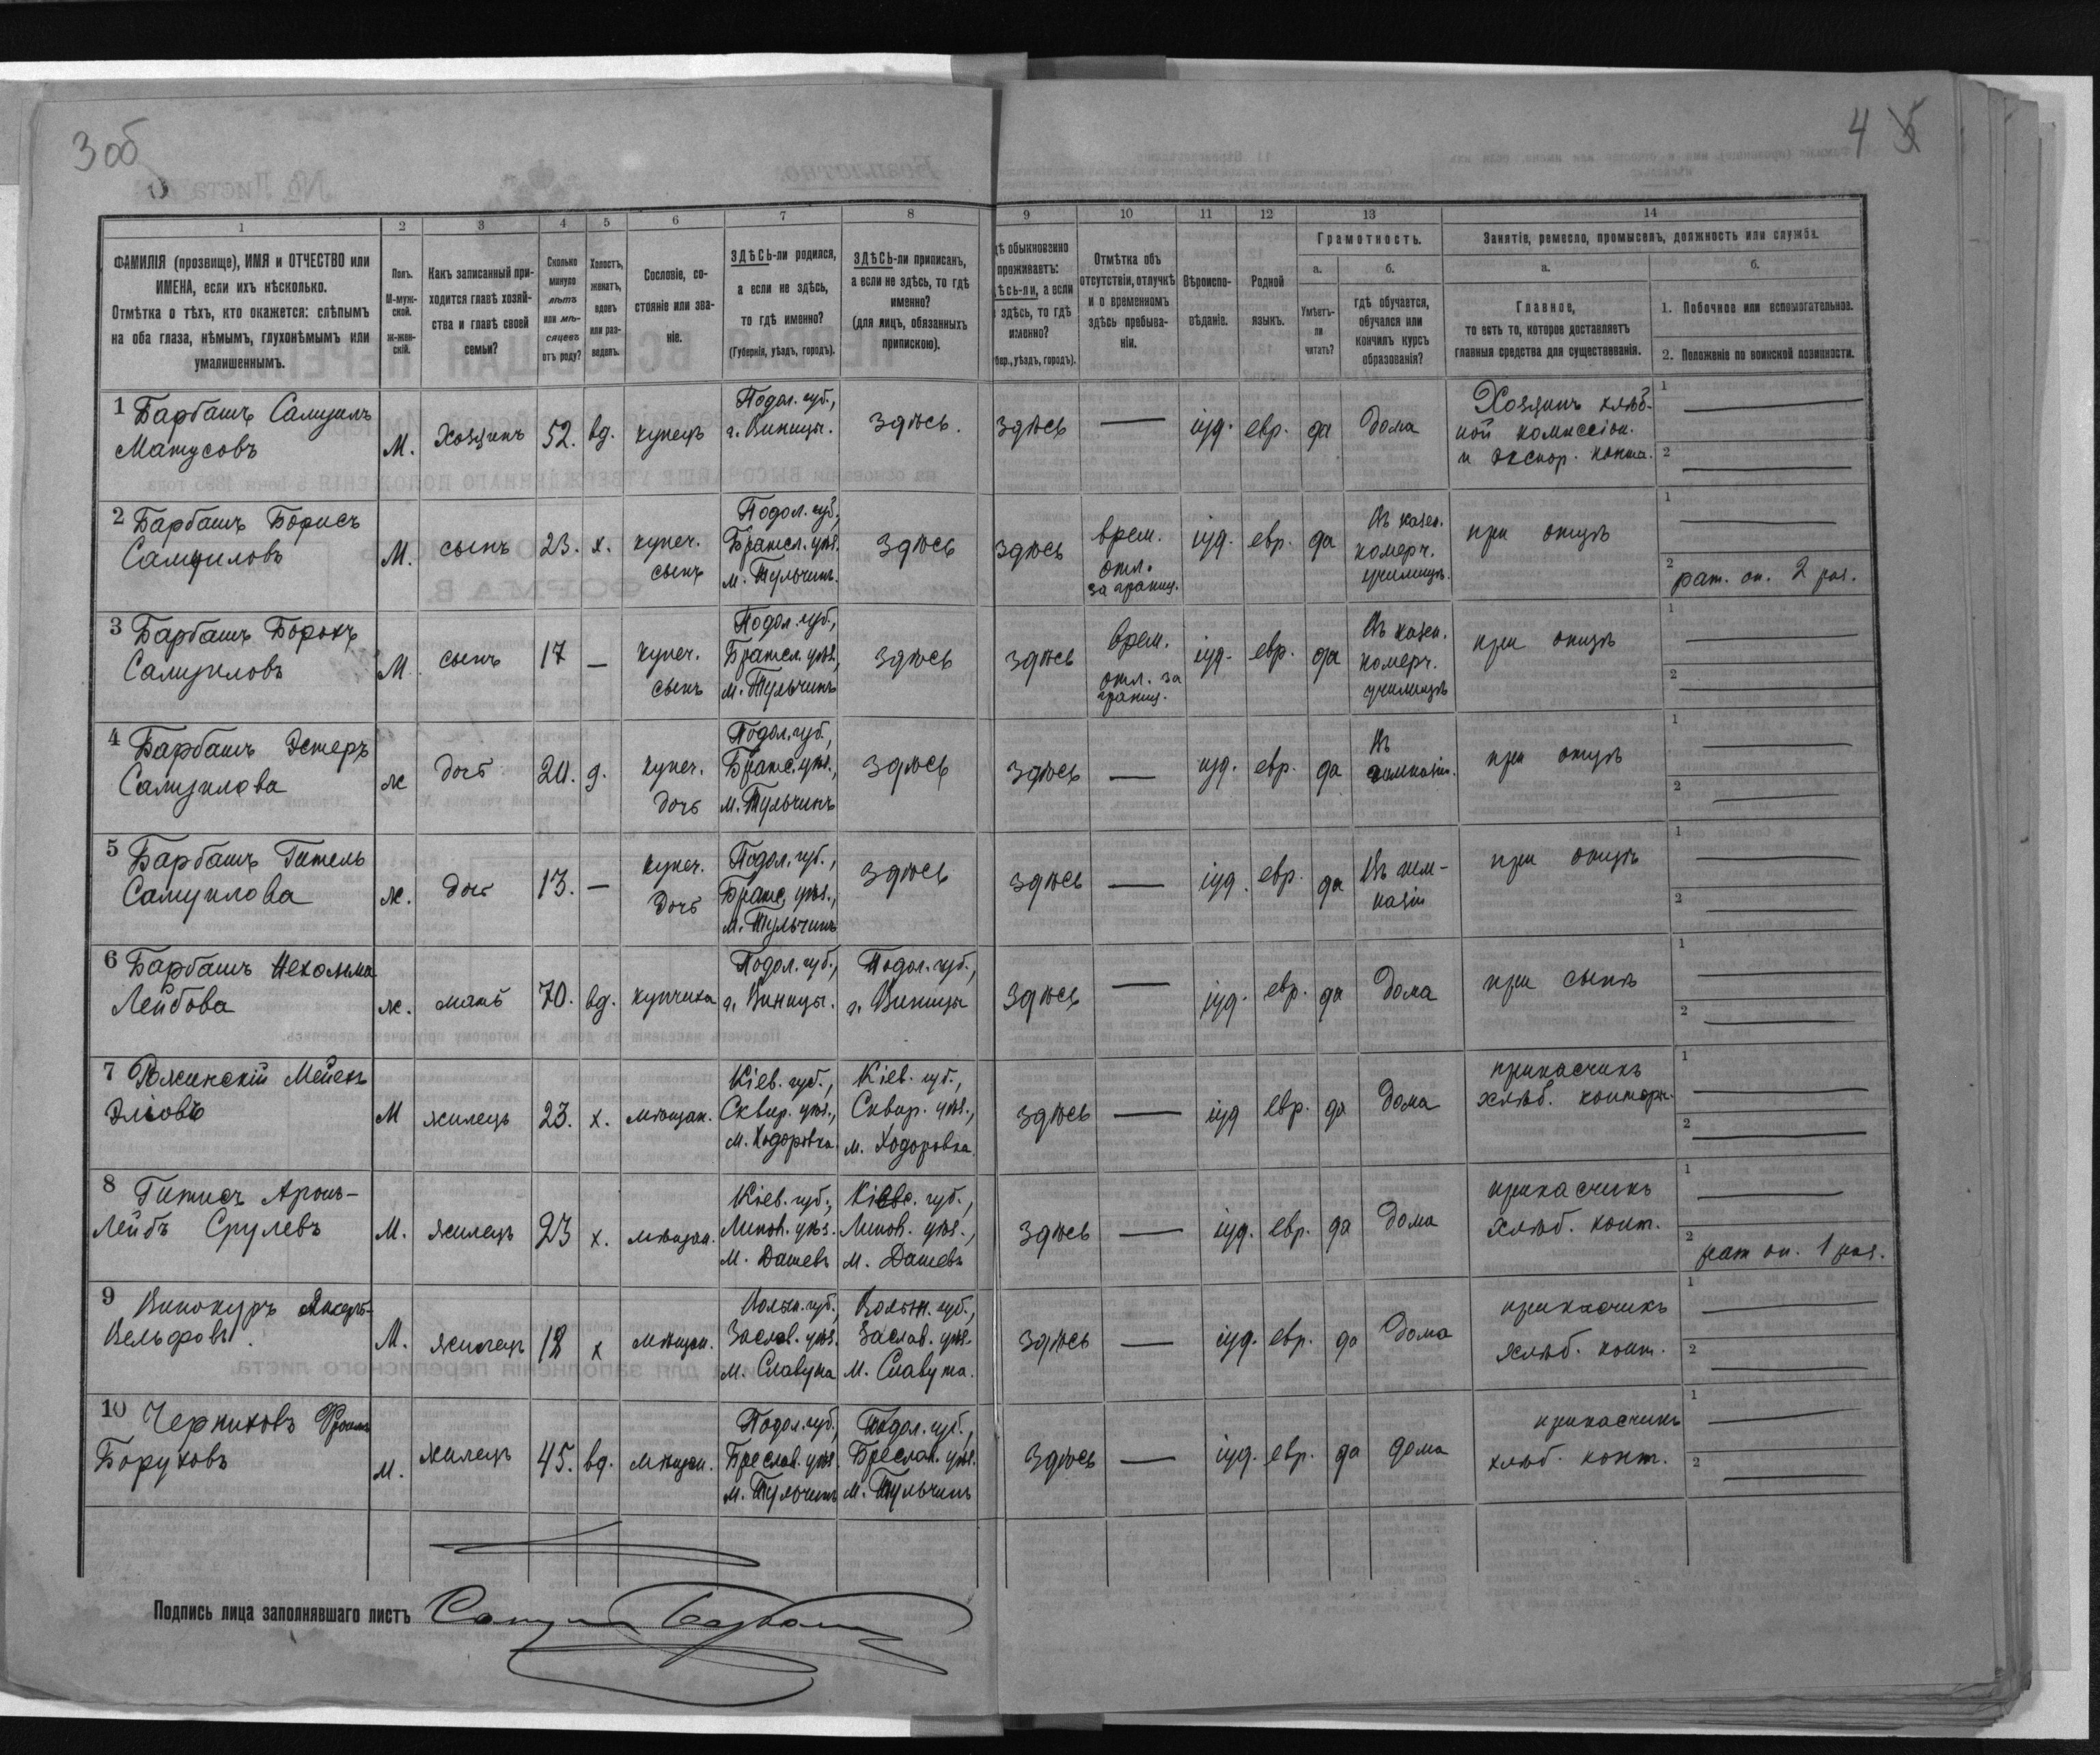 3 об
4
1
2
3
4
5
6
7
8
9
10
11
12
13
14
ФАМИЛІЯ (прозвище), ИМЯ и ОТЧЕСТВО или
ИМЕНА, если ихъ нѣсколько.
Отмѣтка о тѣхъ, кто окажется: слѣпымъ
на оба глаза, нѣмымъ, глухонѣмымъ или
умалишеннымъ.
Полъ.
М-муж-
ской.
ж-жен-
скій.
Какъ записанный при-
ходится главѣ хозяй-
ства и главѣ своей
семьи?
Сколько
минуло
лѣтъ
или мѣ-
сяцевъ
отъ роду?
Холостъ,
женатъ,
вдовъ
или раз-
веденъ.
Сословіе, со-
стояніе или зва-
ніе.
ЗДѢСЬ-ли родился,
а если не здѣсь,
то гдѣ именно?
(Губернія, уѣздъ, городъ).
ЗДѢСЬ-ли приписанъ,
а если не здѣсь, то гдѣ
именно?
(для лицъ, обязанныхъ
припискою).
ѣ обыкновенно
проживаетъ:
ѣсь-ли, а если
здѣсь, то гдѣ
именно?
бер., уѣздъ, городъ).
Отмѣтка объ
отсутствіи, отлучкѣ
и о временномъ
здѣсь пребыва-
ніи.
Вѣроиспо-
вѣданіе.
Родной
языкъ.
Грамотность.
а.
Умѣетъ-
ли
читать?
б.
гдѣ обучается,
обучался или
кончилъ курсъ
образованія?
Занятіе, ремесло, промыселъ, должность или служба.
а.
Главное,
то есть то, которое доставляетъ
главныя средства для существованія.
б.
1. Побочное или вспомогательное.
2. Положеніе по воинской повинности.
1 Барбашъ Самуилъ
Матусовъ
М. Хозяинъ 52. вд. купецъ
Подол. губ.,
г. Виницы.
Здѣсь.
Здѣсь — іуд. евр. да Дома
Хозяинъ хлѣб-
ной комиссіон.
и экспор. конт.
1 —
2 —
2 Барбашъ Борисъ
Самуиловъ
М. сынъ 23. х. купеч.
сынъ
Подол. губ.,
Брацл. уѣз.
м. Тульчинъ.
Здѣсь
Здѣсь
врем.
отл.
за границ.
іуд. евр. да
Въ казен.
комерч.
училищѣ.
при отцѣ
1 —
2 рат. оп. 2 раз.
3 Барбашъ Борохъ
Самуиловъ
М. сынъ 17 — купеч.
сынъ
Подол. губ.,
Брацл. уѣз.,
м. Тульчинъ
Здѣсь
Здѣсь
врем.
отл. за
границ.
іуд. евр. да
Въ казен.
комерч.
училищѣ
при отцѣ
1 —
2 —
4 Барбашъ Эстеръ
Самуилова
ж дочь 20. д. купеч.
дочь
Подол. губ.,
Брацл. уѣз.,
м. Тульчинъ
Здѣсь
Здѣсь — іуд. евр. да
Въ
гимназіи.
при отцѣ
1 —
2 —
5 Барбашъ Гитель
Самуилова
ж. дочь 13. — купеч.
Дочь
Подол. губ.,
Брацл. уѣз.,
м. Тульчинъ
Здѣсь
Здѣсь — іуд. евр. да
Въ гим-
назіи
при отцѣ
1 —
2 —
6 Барбашъ Нехольма
Лейбова
ж. мать 70. вд. купчиха
Подол. губ.,
г. Виницы.
Подол. губ.,
г. Виницы
Здѣсь — іуд. евр. да Дома
при сынѣ
1 —
2 —
7
Эліовъ
М жилецъ 23. х. мѣщан.
Кіев. губ.,
Сквир. уѣз.,
м. Ходорівка
Кіев. губ.,
Сквир. уѣз.,
м. Ходоровка.
Здѣсь — іуд евр. да Дома
приказчикъ
хлѣб. конторы.
1 —
2 —
8 Гитисъ Аронъ-
Лейбъ Срулевъ
М. жилецъ 23 х. мѣщан.
Кіев. губ.,
Липов. уѣз.
М. Дашевъ
губ.,
Липов. уѣз.,
м. Дашевъ
Здѣсь — іуд. евр. да Дома
приказчикъ
хлѣб. конт.
1 —
2 рат оп. 1 раз.
9 Винокуръ
Вельфовъ.
М. жилецъ 18 х мѣщан.
Волын. губ.,
Заслав. уѣз.
м. Славута
Волын. губ.,
Заслав. уѣз.
М. Славута.
Здѣсь — іуд. евр. да Дома
приказчикъ
хлѣб. конт.
1 —
2 —
10 Черниховъ Фроимъ
Боруховъ
м. жилецъ 45. вд. мѣщан.
Подол. губ.,
Бреслав. уѣз.
м. Тульчинъ
Подол. губ.,
Бреслав. уѣз.
м. Тульчинъ
Здѣсь — іуд. евр. да дома
приказчикъ
хлѣб. конт.
1 —
2 —
Подпись лица заполнявшаго листъ Самуил Барбашъ